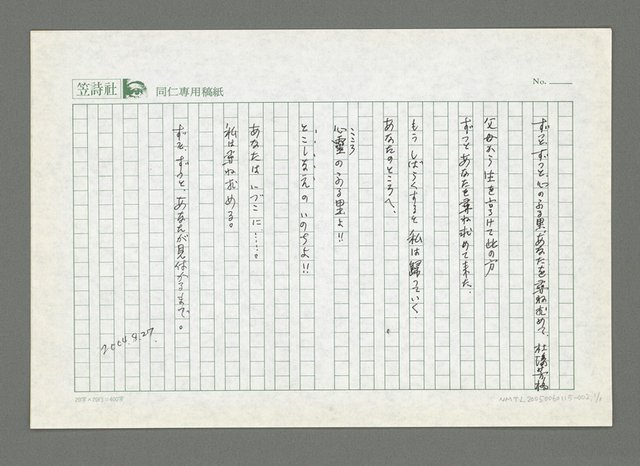 笠詩社
同仁專用稿紙
No.
ずっと、ずっと、心のふる里、あなたを尋ね求めて、 杜潘芳格
父母から生を享けて此の方
ずっとあなたを尋ね求めて来た。
もうしばらくすると私は歸っていく。
あなたのところへ。
こころ
心靈のふる里よ!!
とこしなえのいのちよ!!
あなたはいづこに……。
私は尋ね求める。
ずっと、ずうっと、あなたが見付かるまで。
2004.8.27.